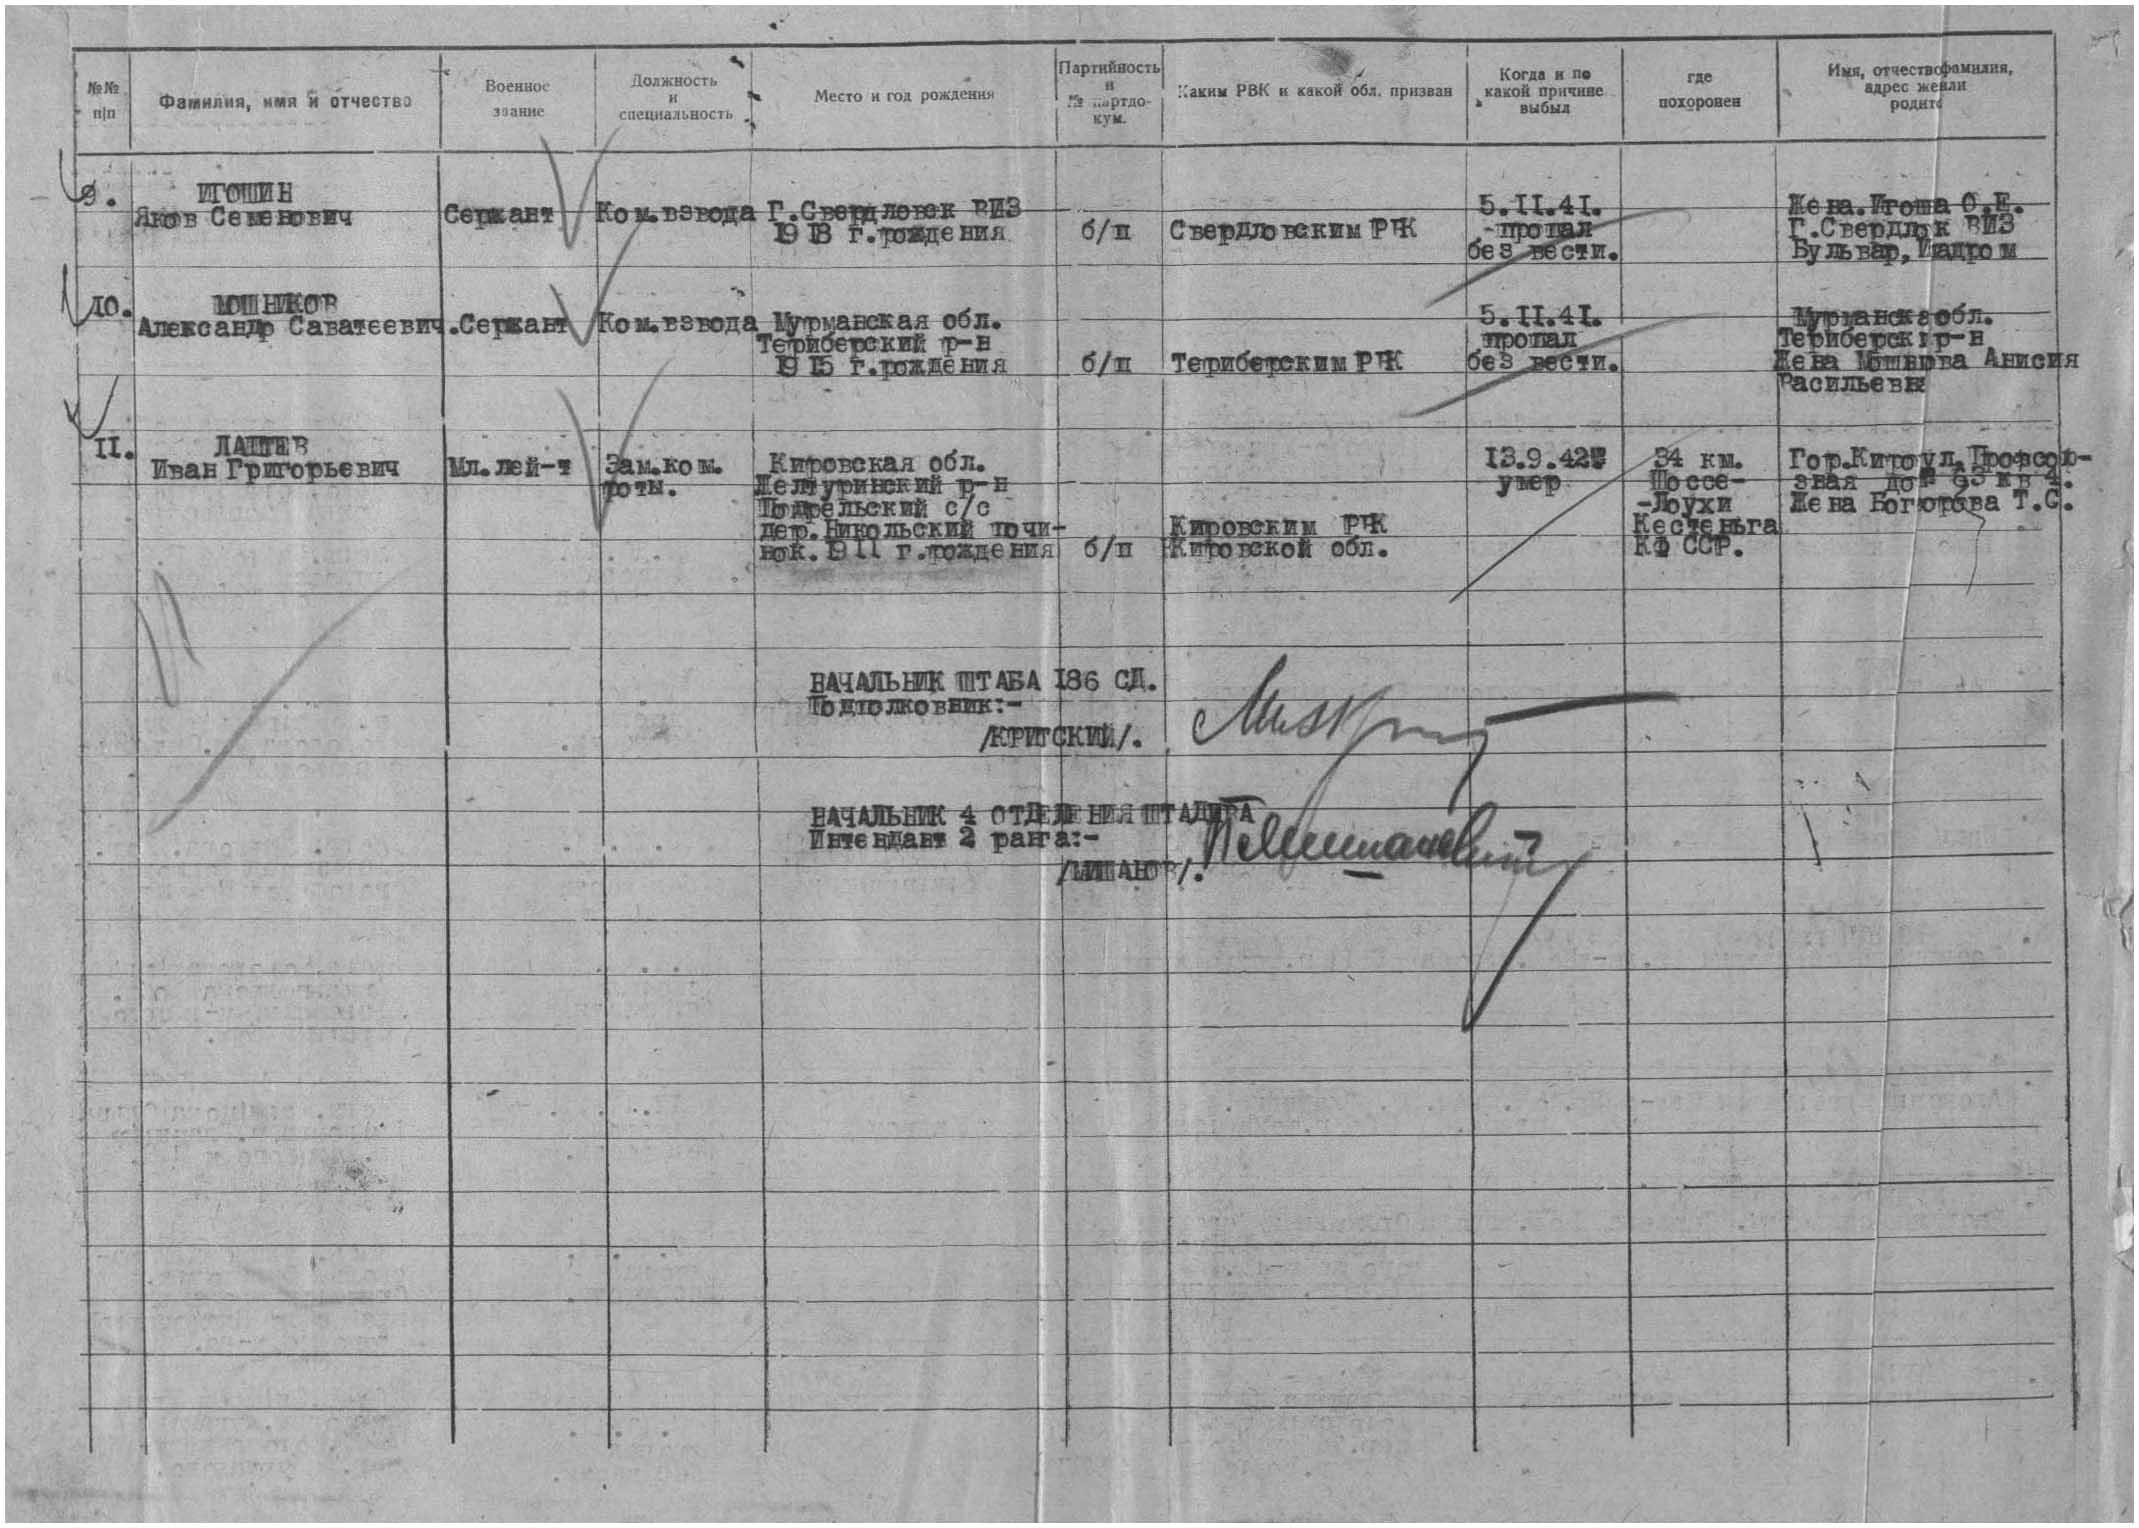 №№ п|п
Фамилия, имя и отчество
Военное звание
Должность и специальность
Место и год рождения
Партийность и № партдокум.
Каким РВК и какой обл. призван
Когда и по какой причине выбыл
где похоронен
Имя, отчество фамилия, адрес жен или родит
9.
ИГОШИН
Яков Семенович
Сержант
Ком.взвода
Г.Свердловск ВИЗ
1918 г.рождения
б/п
Свердловским РВК
5.II.4I.
пропал
без вести.
Жена.Игоша О.Е.
Г.Свердлок ВИЗ
Бульвар,
IO.
МОШНИКОВ
Александр Саватеевич.
Сержант
Ком.взвода
Мурманская обл.
Териберский р-н
1915 г.рождения
б/п
Териберским РВК
5.II.4I.
пропал
без вести.
Мурманская обл.
Териберск р-н
Жена Мошнкова Анисия
Васильевн
II.
ЛАПТЕВ
Иван Григорьевич
Мл.лей-т
Зам.ком.
роты.
Кировская обл.
Шелтуринский р-н
с/с
дер.Никольский почи-
нок. 1911 г.рождения
б/п
Кировским РВК
Кировской обл.
13.9.42г
умер
34 км.
Шоссе-
-Лоухи
Кестеньга
КФ ССР.
Гор.Киро ул.Профсою-
зная до 93 кв 4.
Жена Т.С.
НАЧАЛЬНИК ШТАБА I86 СД.
Подполковник:-
/КРИГСКИЙ/.
НАЧАЛЬНИК 4 ОТДЕЛЕНИЯ ШТАДИВА
Интендант 2 ранга:-
/МИШАНОВ/.